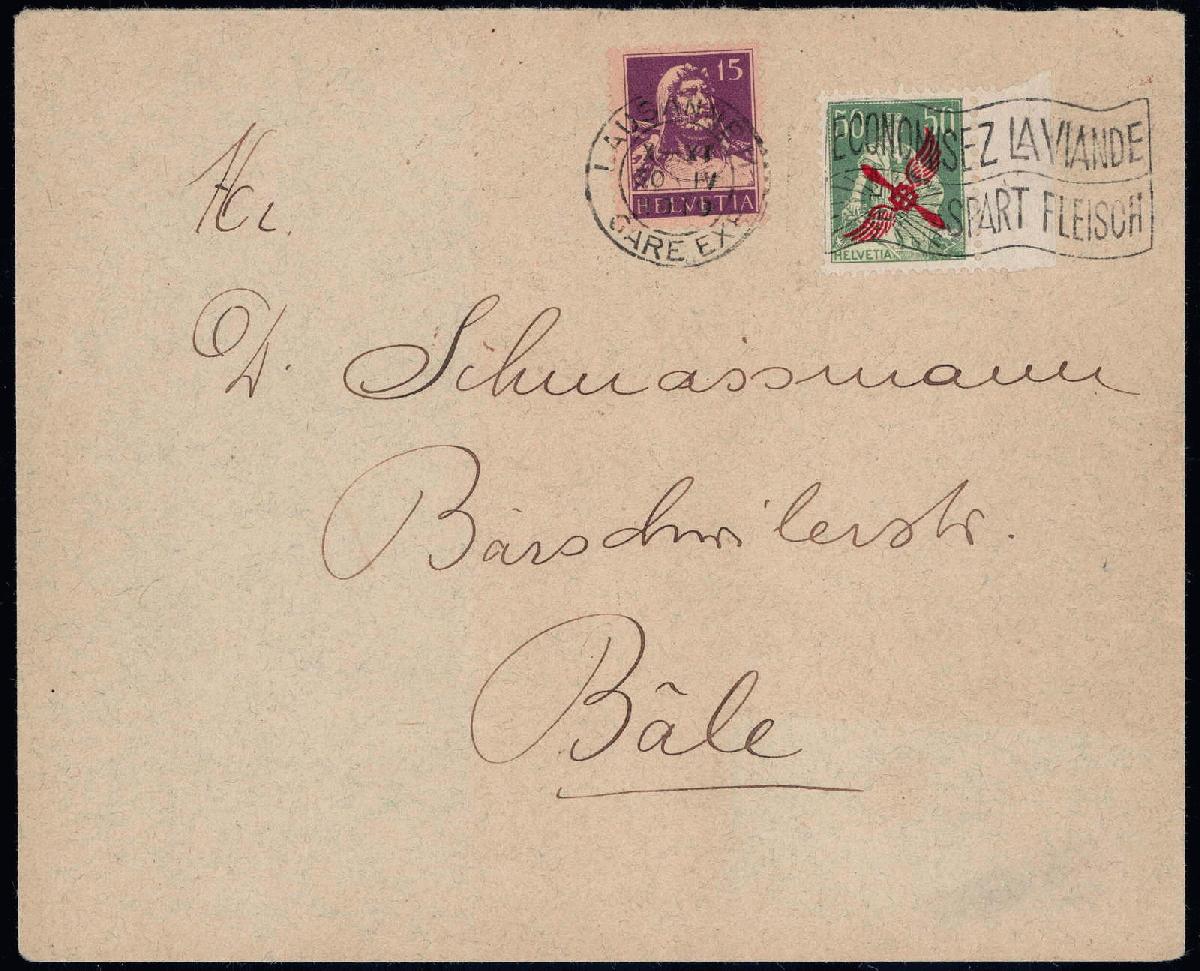 15
HELVETIA
LAUSANNE
XI
20 IV
GARE EXP
50 50
HELVETIA
ECONOMISEZ LA VIANDE
SPART FLEISCH
Hr.
D. Schmassmann
Bärschwilerstr.
Bâle